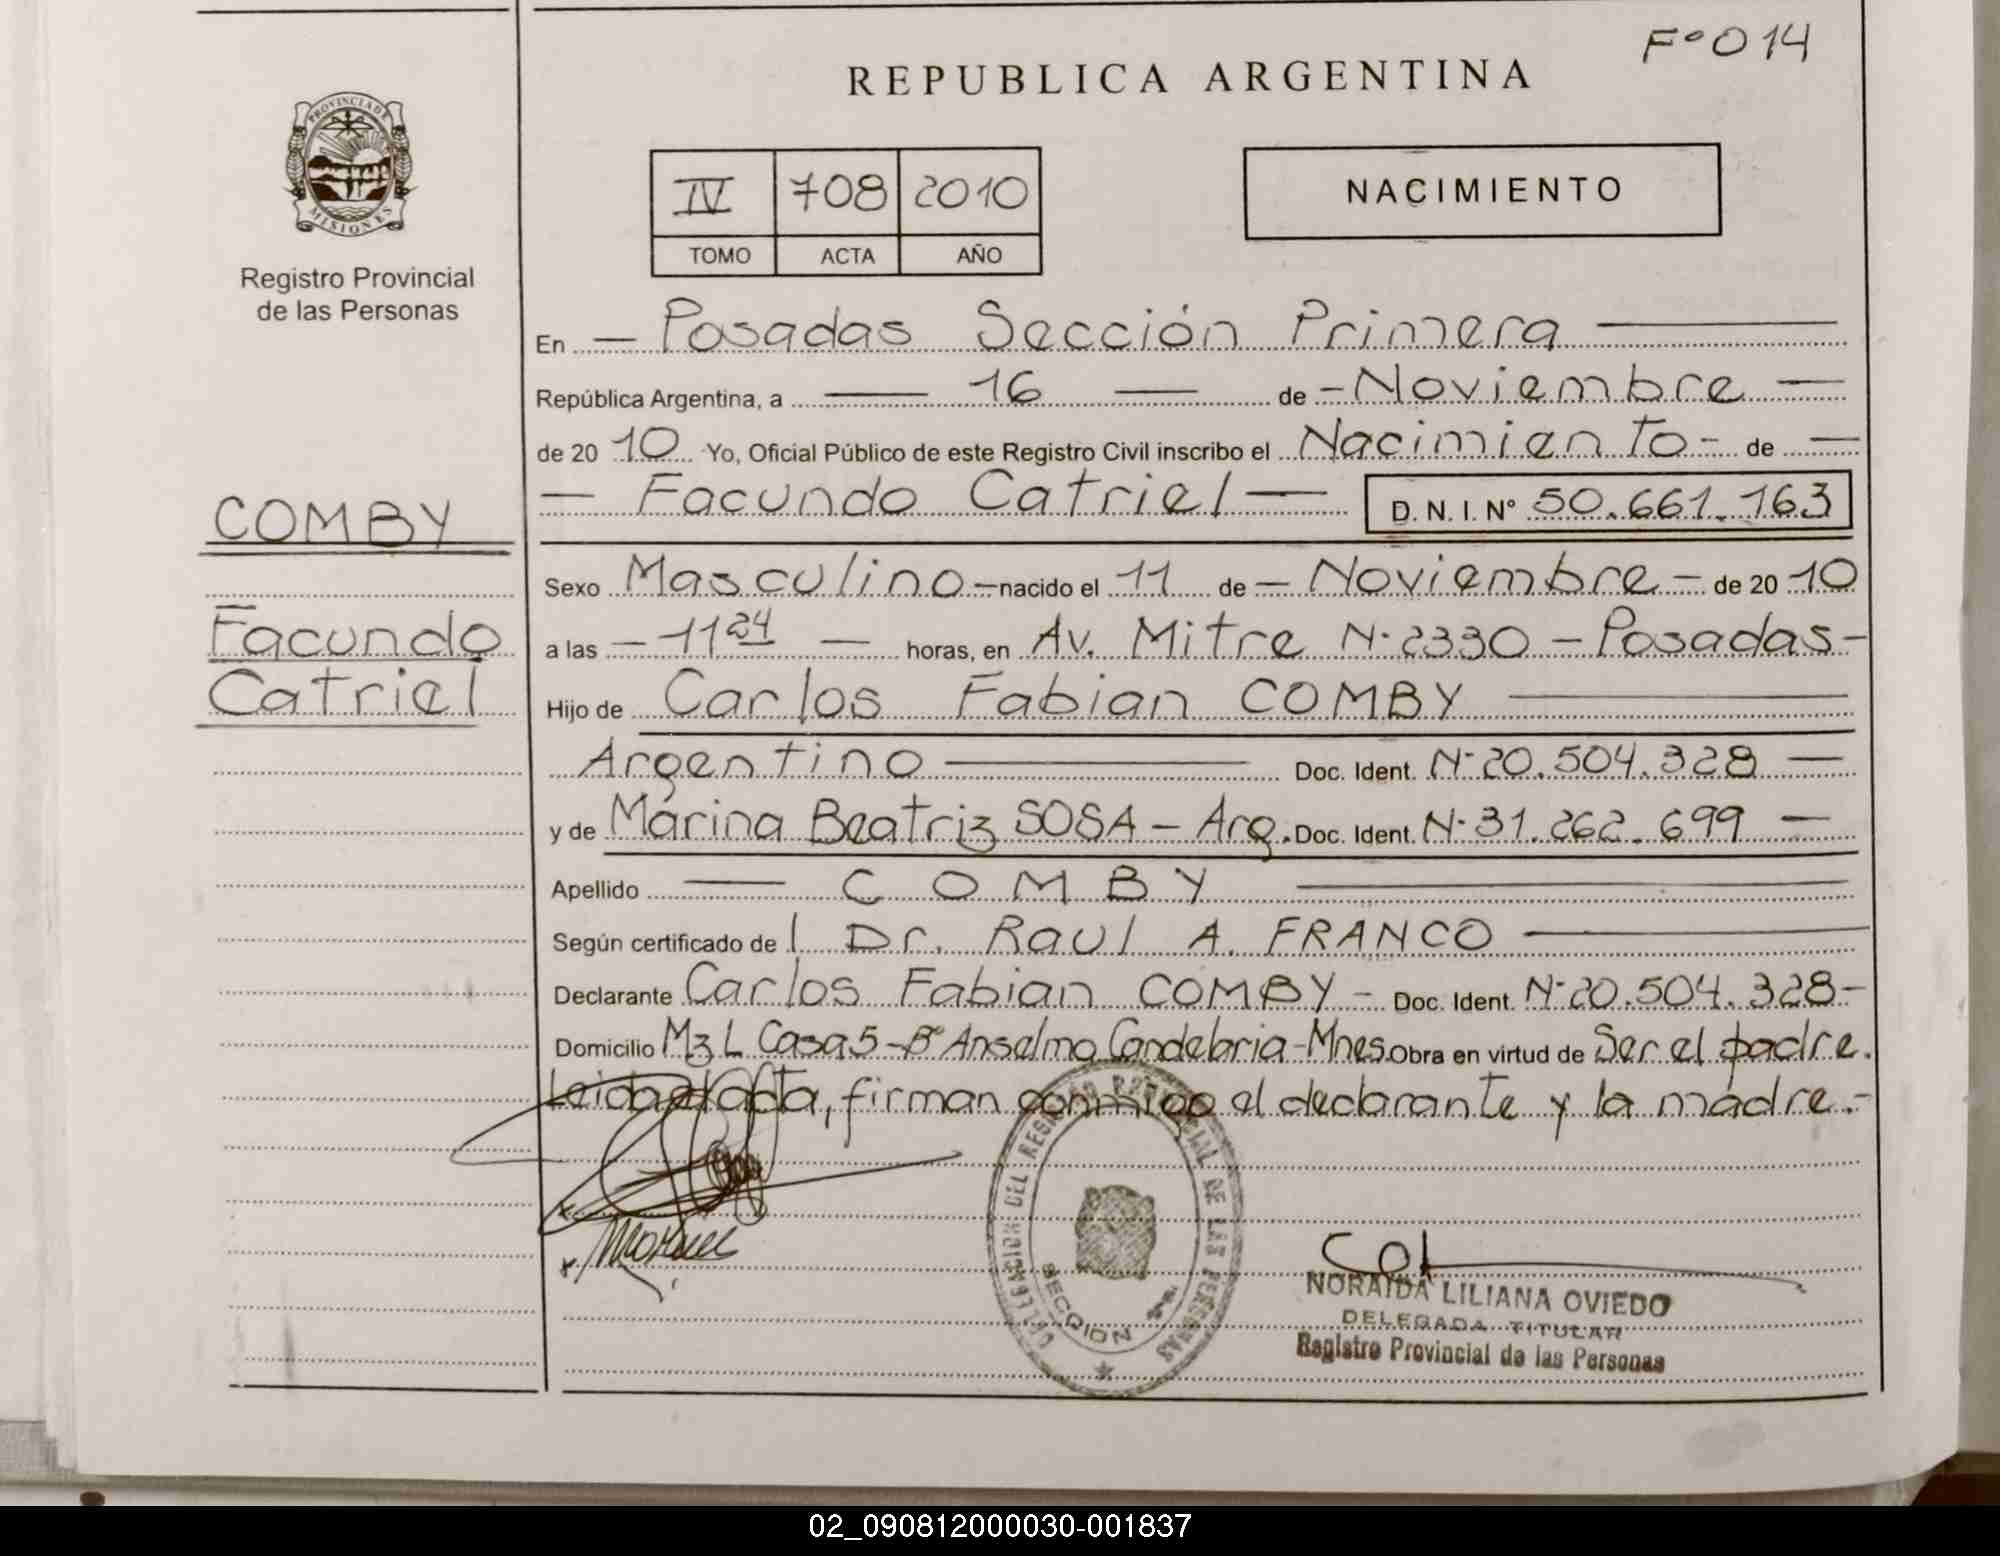 F° 014
REPUBLICA ARGENTINA
PROVINCIA DE
MISIONES
Registro Provincial
de las Personas
IV 708 2010
TOMO ACTA AÑO
NACIMIENTO
En — Posadas Sección Primera —
República Argentina, a — 16 — de - Noviembre —
de 20 10 Yo, Oficial Público de este Registro Civil inscribo el Nacimiento - de —
— Facundo Catriel — D. N. I. N° 50.661.163
COMBY
Facundo
Catriel
Sexo Masculino — nacido el 11 de — Noviembre — de 20 10
a las — 11 24 — horas, en Av. Mitre N· 2330 — Posadas -
Hijo de Carlos Fabian COMBY —
Argentino — Doc. Ident. N· 20.504.328 —
y de Marina Beatriz SOSA — Arg. Doc. Ident. N· 31.262.699 —
Apellido — COMBY —
Según certificado de Dr. Raul A. FRANCO —
Declarante Carlos Fabian COMBY - Doc. Ident. N· 20.504.328 -
Domicilio Mz L Casa 5 - B° Anselmo Candelaria - Mnes. Obra en virtud de Ser el padre.
Leida el acta, firman conmigo el declarante y la madre.-
DEL REGISTRO PROVINCIAL DE LAS PERSONAS
SECCION
NORAIDA LILIANA OVIEDO
DELEGADA TITULAR
Registro Provincial de las Personas
02_090812000030-001837